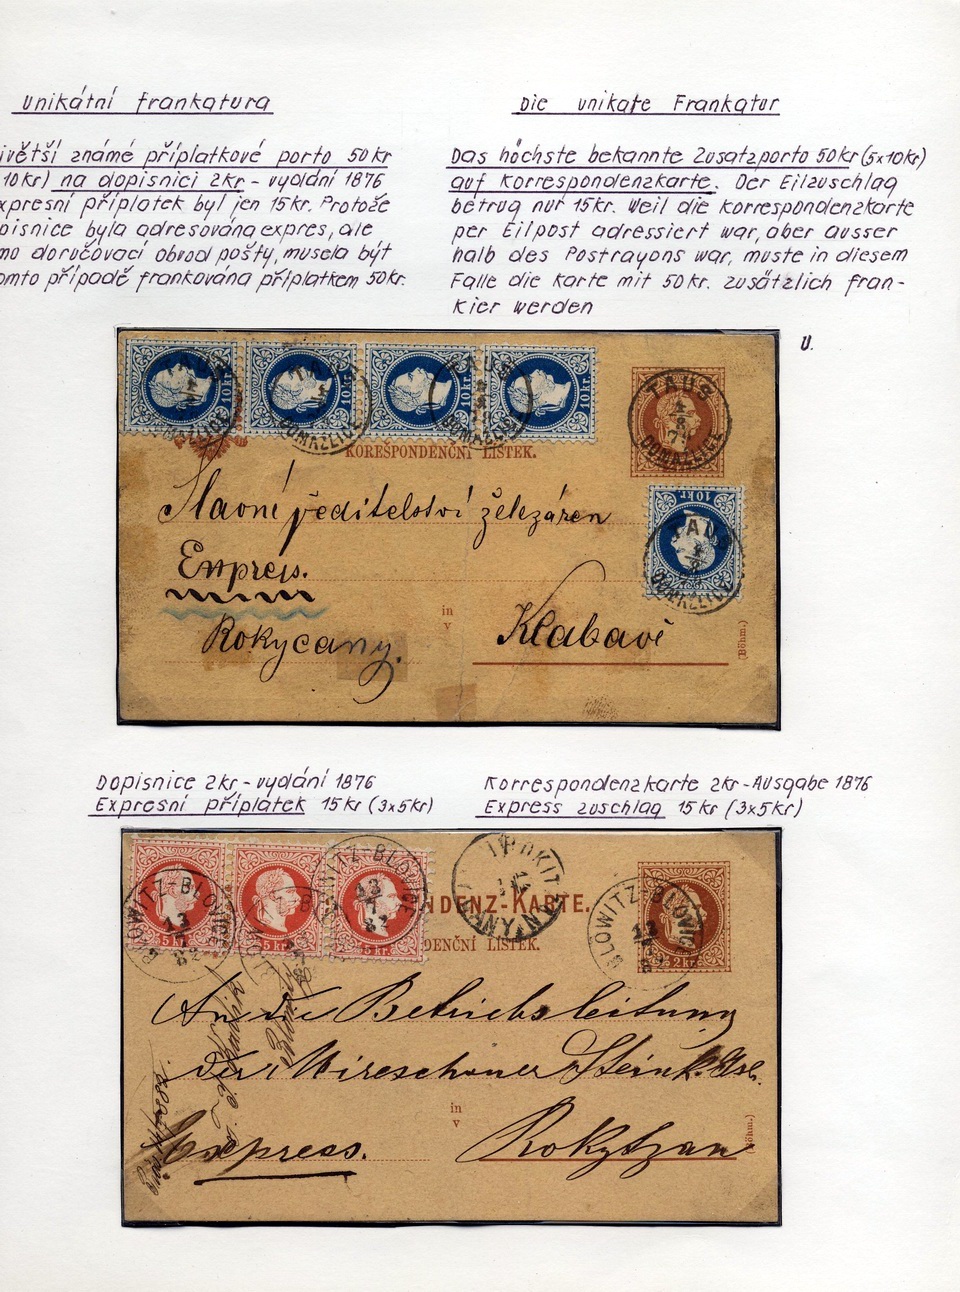 unikátní frankatura
ivětší známé příplatkové porto 50kr
10kr) na dopisnici 2kr - vydání 1876
xpresní příplatek byl jen 15kr. Protože
pisnice byla adresována expres, ale
mo doručovací obvod pošty, musela být
omto případě frankována příplatkem 50kr.
Die unikate Frankatur
Das höchste bekannte Zusatzporto 50kr (5x10kr)
auf Korrespondenzkarte. Der Eilzuschlag
betrug nur 15kr. Weil die Korrespondenzkarte
per Eilpost adressiert war, aber ausser
halb des Postrayons war, muste in diesem
Falle die Karte mit 50kr. zusätzlich fran-
kier werden
U.
10kr. 10kr. 10kr. 10kr.
TAUS DOMAŽLICE
TAUS DOMAŽLICE
KORESPONDENČNÍ LÍSTEK.
10kr.
TAUS DOMAŽLICE
Slavné ředitelství železáren
Express.
in
v
Rokycany.
Klabavě
(Böhm.)
Dopisnice 2kr - vydání 1876
Expresní příplatek 15kr (3x5kr)
Korrespondenzkarte 2kr - Ausgabe 1876
Express zuschlag 15kr (3x5kr)
5kr. 5kr. 5kr.
BLOWITZ-BLOVICE 13 7 82
NDENZ-KARTE.
DENČNÍ LÍSTEK.
2kr.
BLOWITZ-BLOVICE
An die Betriebsleitung
der Mireschauer Steink. Gew.
in
v
Express.
Rokytzan
(Böhm.)